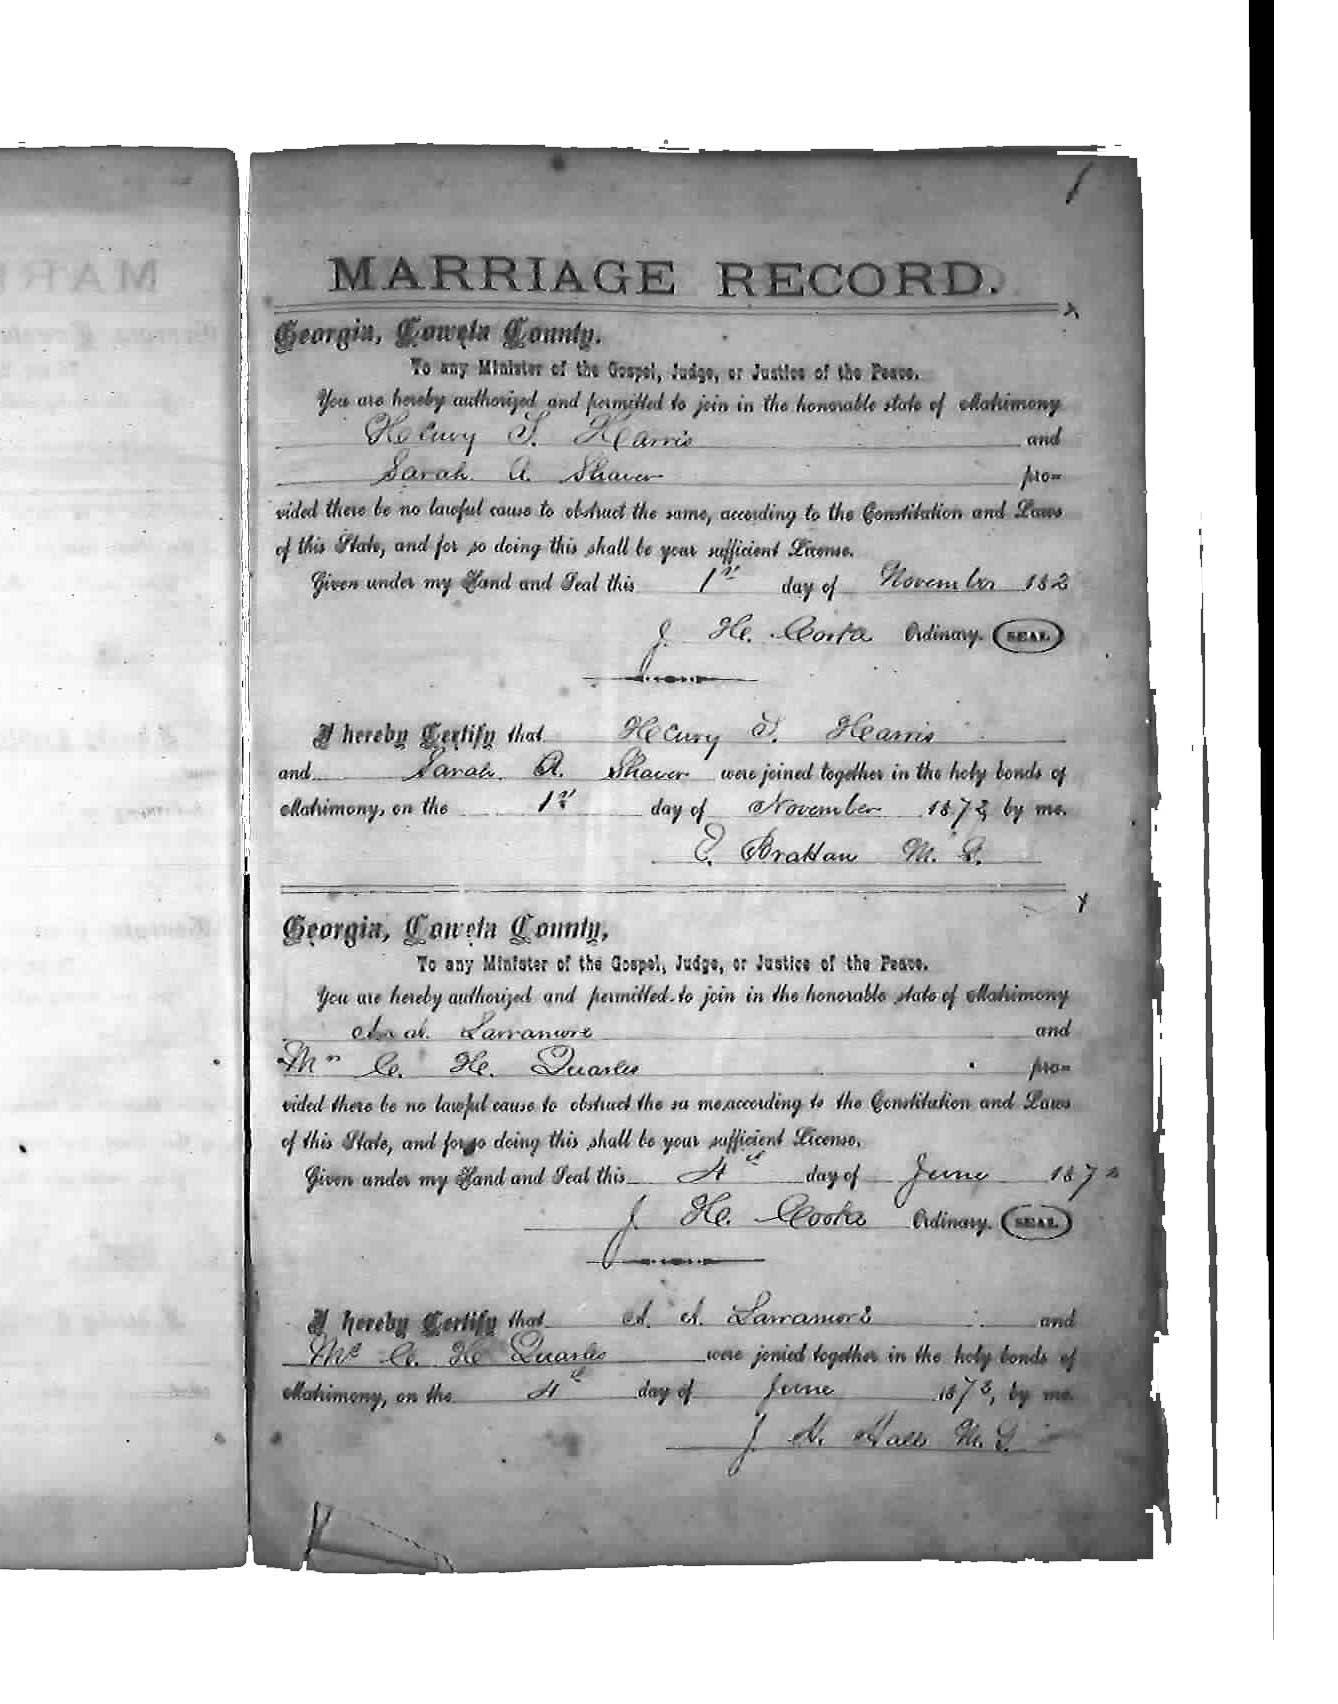 MARRIAGE RECORD.
Georgia, Coweta County.
To any Minister of the Gospel, Judge, or Justice of the Peace.
You are hereby authorized and permitted to join in the honorable state of Matrimony
Henry T. Harris and
Sarah A. Shaver pro=
vided there be no lawful cause to obstruct the same, according to the Constitution and Laws
of this State, and for so doing this shall be your sufficient License.
Given under my Hand and Seal this 1st day of November 18
J. H. Cooke Ordinary. SEAL
I hereby Certify that Henry T. Harris
and Sarah A. Shaver were joined together in the holy bonds of
Matrimony, on the 1st day of November 187 by me.
Brattan M. G.
Georgia, Coweta County,
To any Minister of the Gospel, Judge, or Justice of the Peace.
You are hereby authorized and permitted to join in the honorable state of Matrimony
Larramore and
C. H. Quarles pro=
vided there be no lawful cause to obstruct the sa me, according to the Constitution and Laws
of this State, and for so doing this shall be your sufficient License.
Given under my Hand and Seal this 4th day of June 187
J. H. Cooke Ordinary. SEAL
I hereby Certify that A. A. Larramore and
C. H. Quarles were jonied together in the holy bonds of
Matrimony, on the 4th day of June 1873, by me.
J. H. Hall M. G.